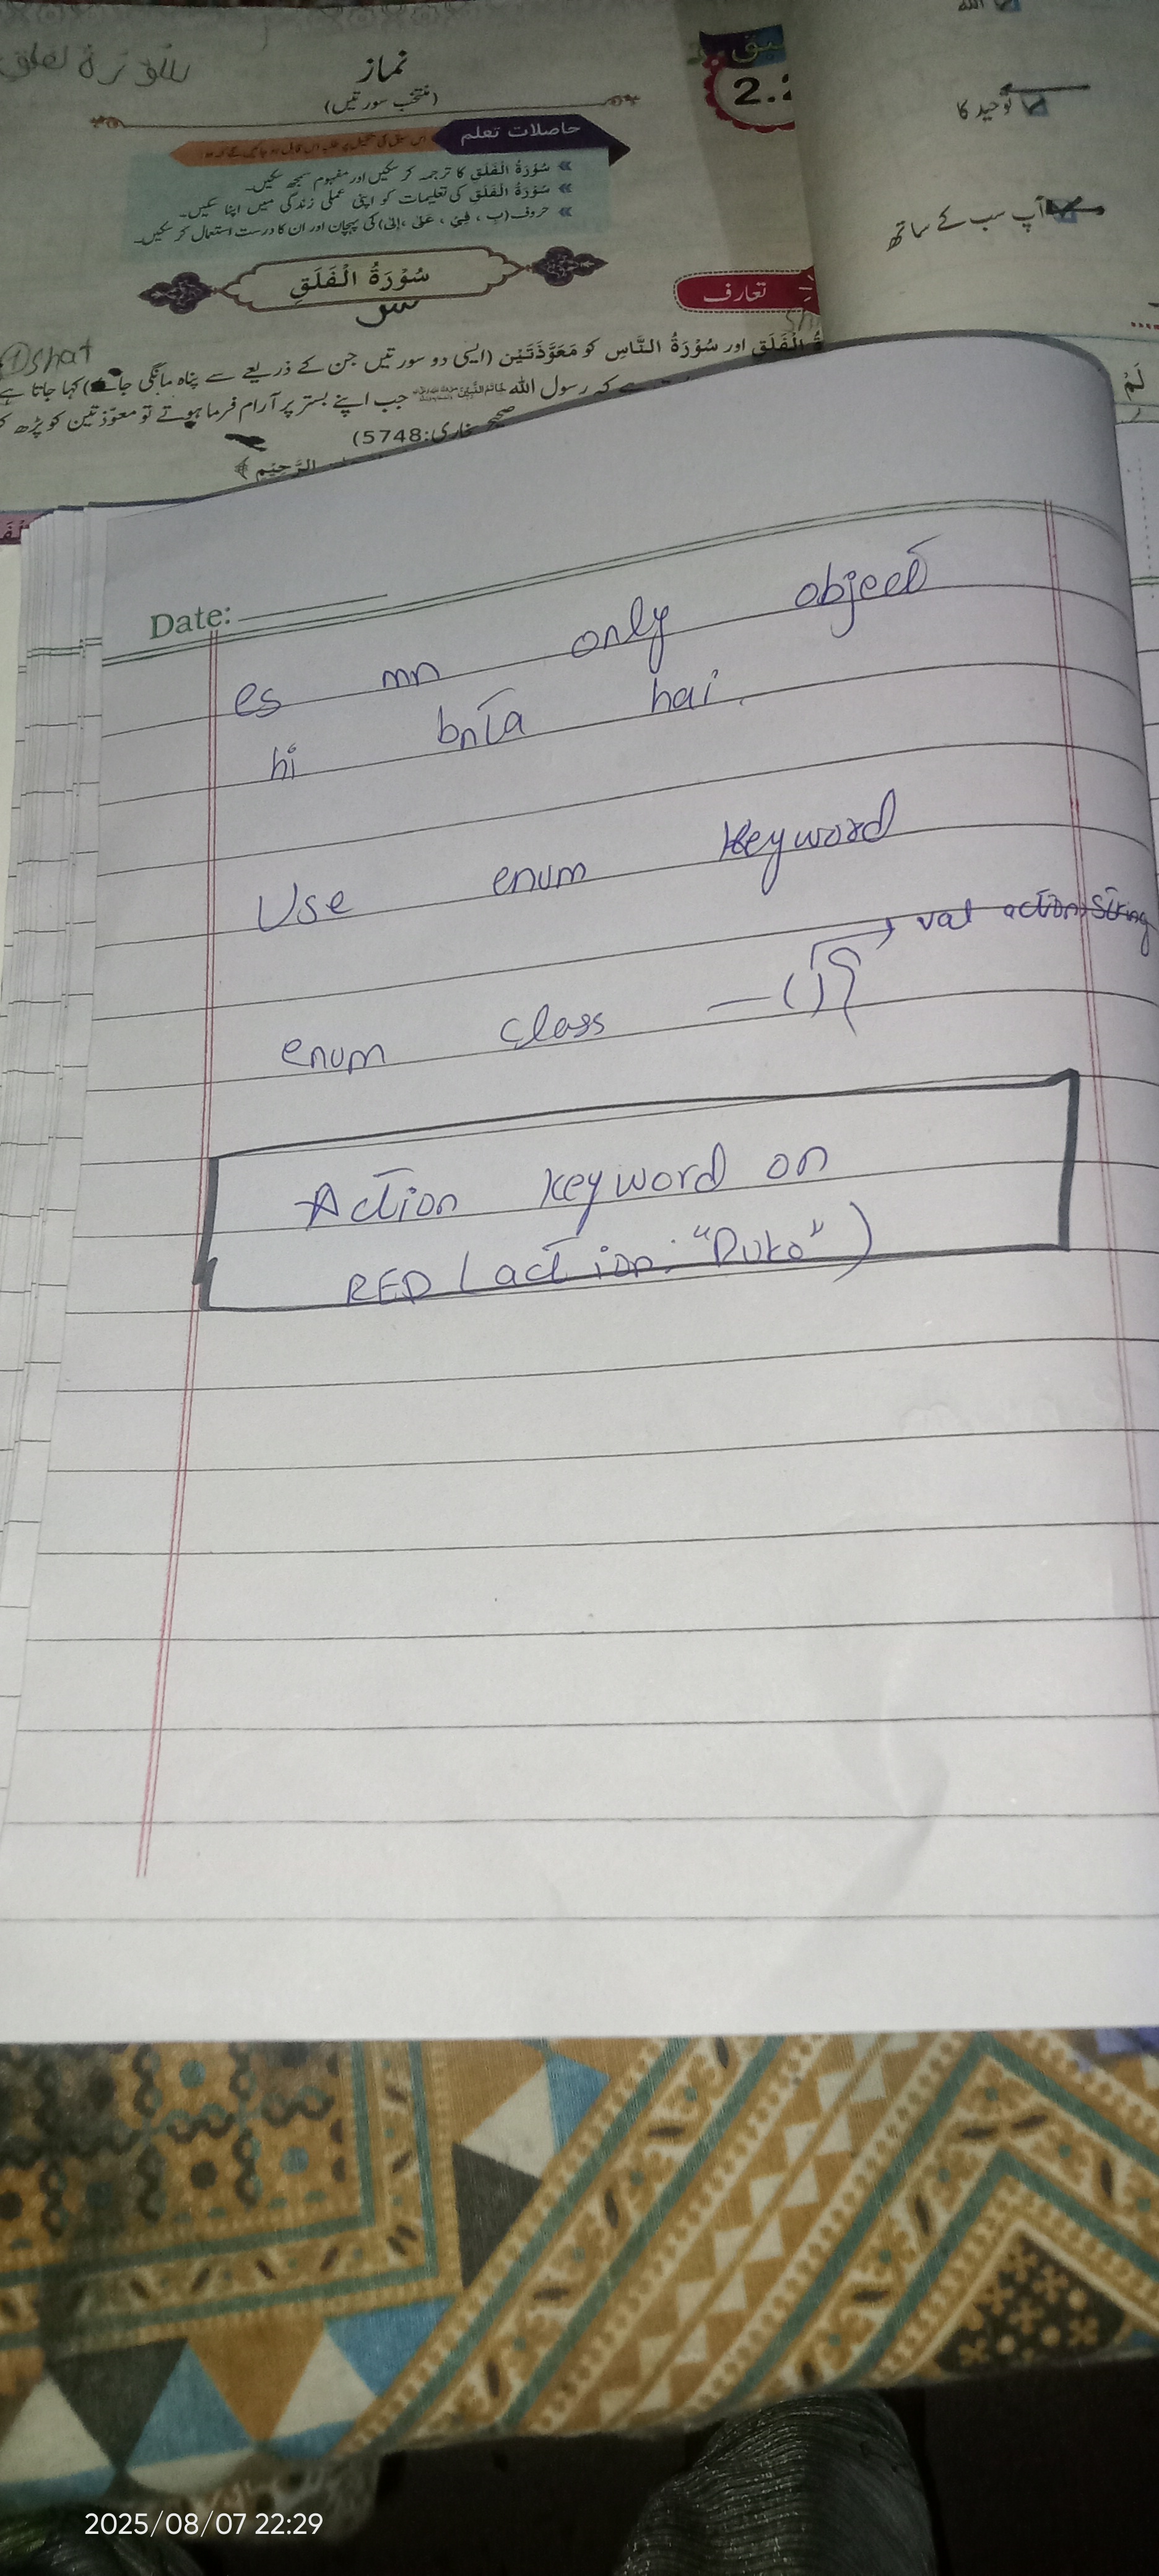 سورة فلق
نماز
(منتخب سورتیں)
سبق
حاصلات تعلم
اس سبق کی تکمیل پر طلبہ اس قابل ہو جائیں گے کہ وہ:
سُوْرَۃُ الْفَلَقِ کا ترجمہ کر سکیں اور مفہوم سمجھ سکیں۔
سُوْرَۃُ الْفَلَقِ کی تعلیمات کو اپنی عملی زندگی میں اپنا سکیں۔
حروف (بِ ، فِیْ ، عَلٰی ، اِلٰی) کی پہچان اور ان کا درست استعمال کر سکیں۔
سُوْرَۃُ الْفَلَقِ
تعارف
اللہ
توحید کا
آپ سب کے ساتھ
لَمْ
ۃُ الْفَلَقِ اور سُوْرَۃُ النَّاسِ کو مَعَوَّذَتَیْن (ایسی دو سورتیں جن کے ذریعے سے پناہ مانگی جائے) کہا جاتا ہے
ہے کہ رسول اللہ جب اپنے بستر پر آرام فرما ہوتے تو معوّذتین کو پڑھ
صحیح بخاری:5748)
الرَّحِیْمِ
Date:
es mn only object
hi bnta hai.
Use enum Keyword
val action:String
enum class — () {
Action keyword on
RED (action: "Ruko")
2025/08/07 22:29